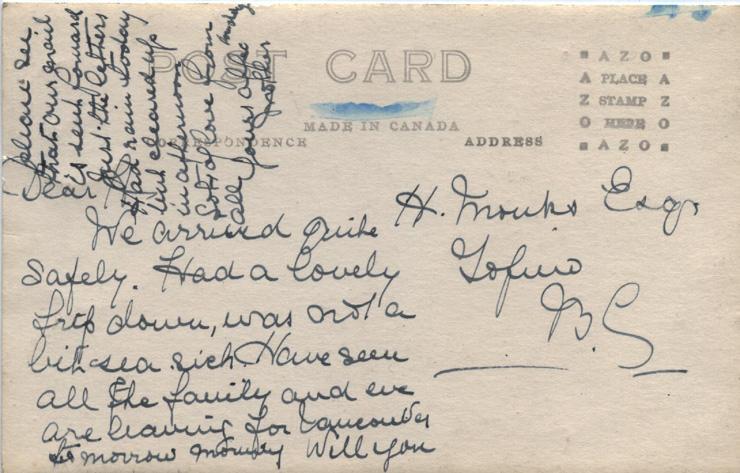 POST CARD
MADE IN CANADA
CORRESPONDENCE
ADDRESS
AZO
A PLACE A
Z STAMP Z
O HERE O
AZO
Dear
We arrived quite
safely. Had a lovely
trip down, was not a
bit sea sick. Have seen
all the family and we
are leaving for Vancouver
to morrow morning Will you
please see
that our mail
is sent forward
just the letters
Had rain today
but cleared up
in afternoon
Lots of love from
all yours affec
Mother
H. Monks Esq.
Tofino
B.C.